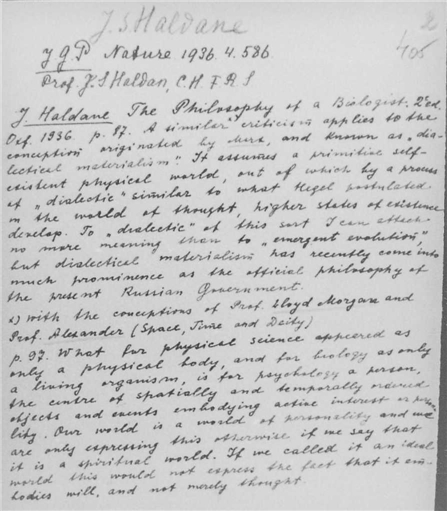 J. S Haldane
2
405
J G P Nature 1936. 4. 586.
Prof. J. S Haldan, C. H. F. R. S
J. Haldane The Philosophy of a Biologist. 2 ed.
Oxf. 1936. p. 87. A similar criticism applies to the
conception originated by Marx, and known as „dia-
lectical materialism". It assumes a primitive self-
existent physical world, out of which by a process
of „dialectic" similar to what Hegel postulated
in the world of thought, higher states of existence
develop. To „dialectic" of this sort I can attach
no more meaning than to „emergent evolution"
but dialectical materialism has recently come into
much prominence as the official philosophy of
the present Russian Government.
x) with the conceptions of Prof. Lloyd Morgan and
Prof. Alexander (Space, Time and Deity)
p. 97. What for physical science appeared as
only a physical body, and for biology as only
a living organism, is for psychology a person,
the centre of spatially and temporally ordered
objects and events embodying active interest or
lity. Our world is a world of personality and we
are only expressing this otherwise if we say that
it is a spiritual world. If we called it an ideal
world this would not express the fact that it em-
bodies will, and not merely thought.